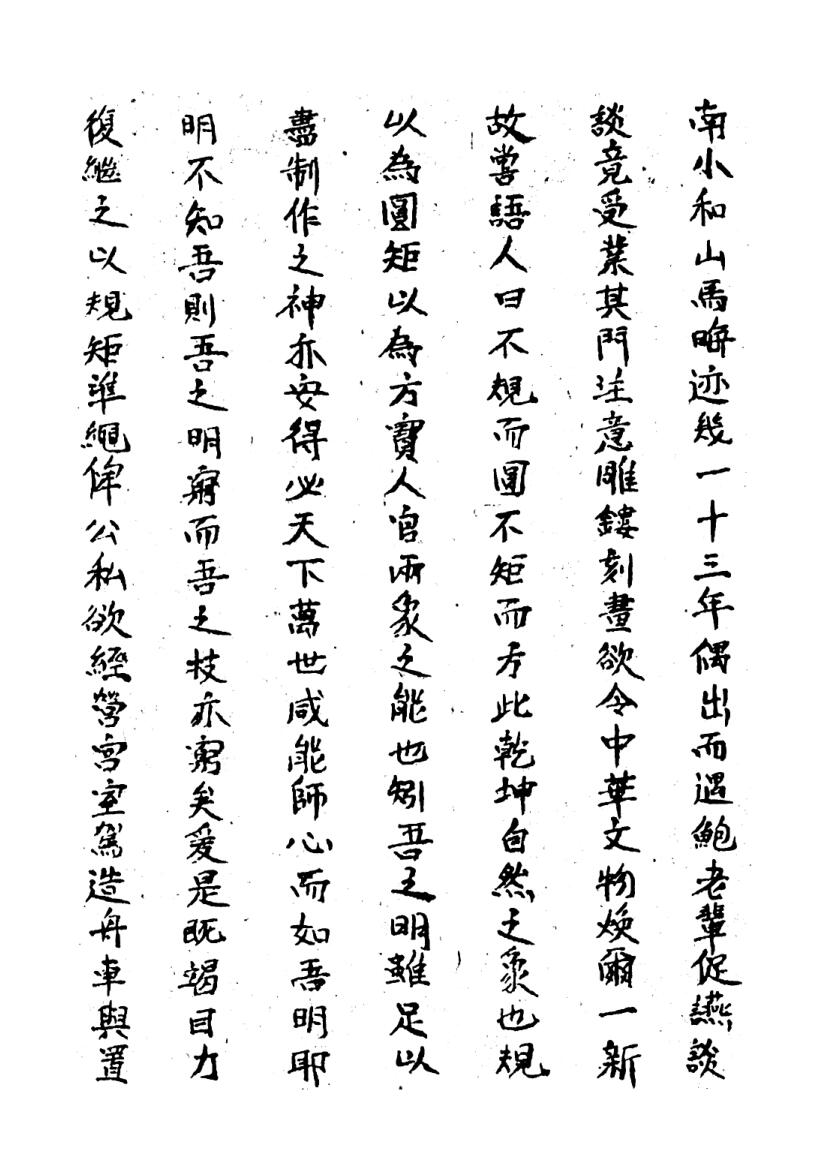 南小和山焉晦迹幾一十三年偶出而遇鮑老輩促讌談
談竟受業其門注意雕鏤刻畫欲令中華文物煥爾一新
故嘗語人曰不規而圓不矩而方此乾坤自然之象也規
以為圓矩以為方實人官兩象之能也矧吾之明雖足以
盡制作之神亦安得必天下萬世咸能師心而如吾明耶
明不知吾則吾之明窮而吾之技亦窮矣爰是既竭目力
復繼之以規矩準繩俾公私欲經營宮室駕造舟車與置